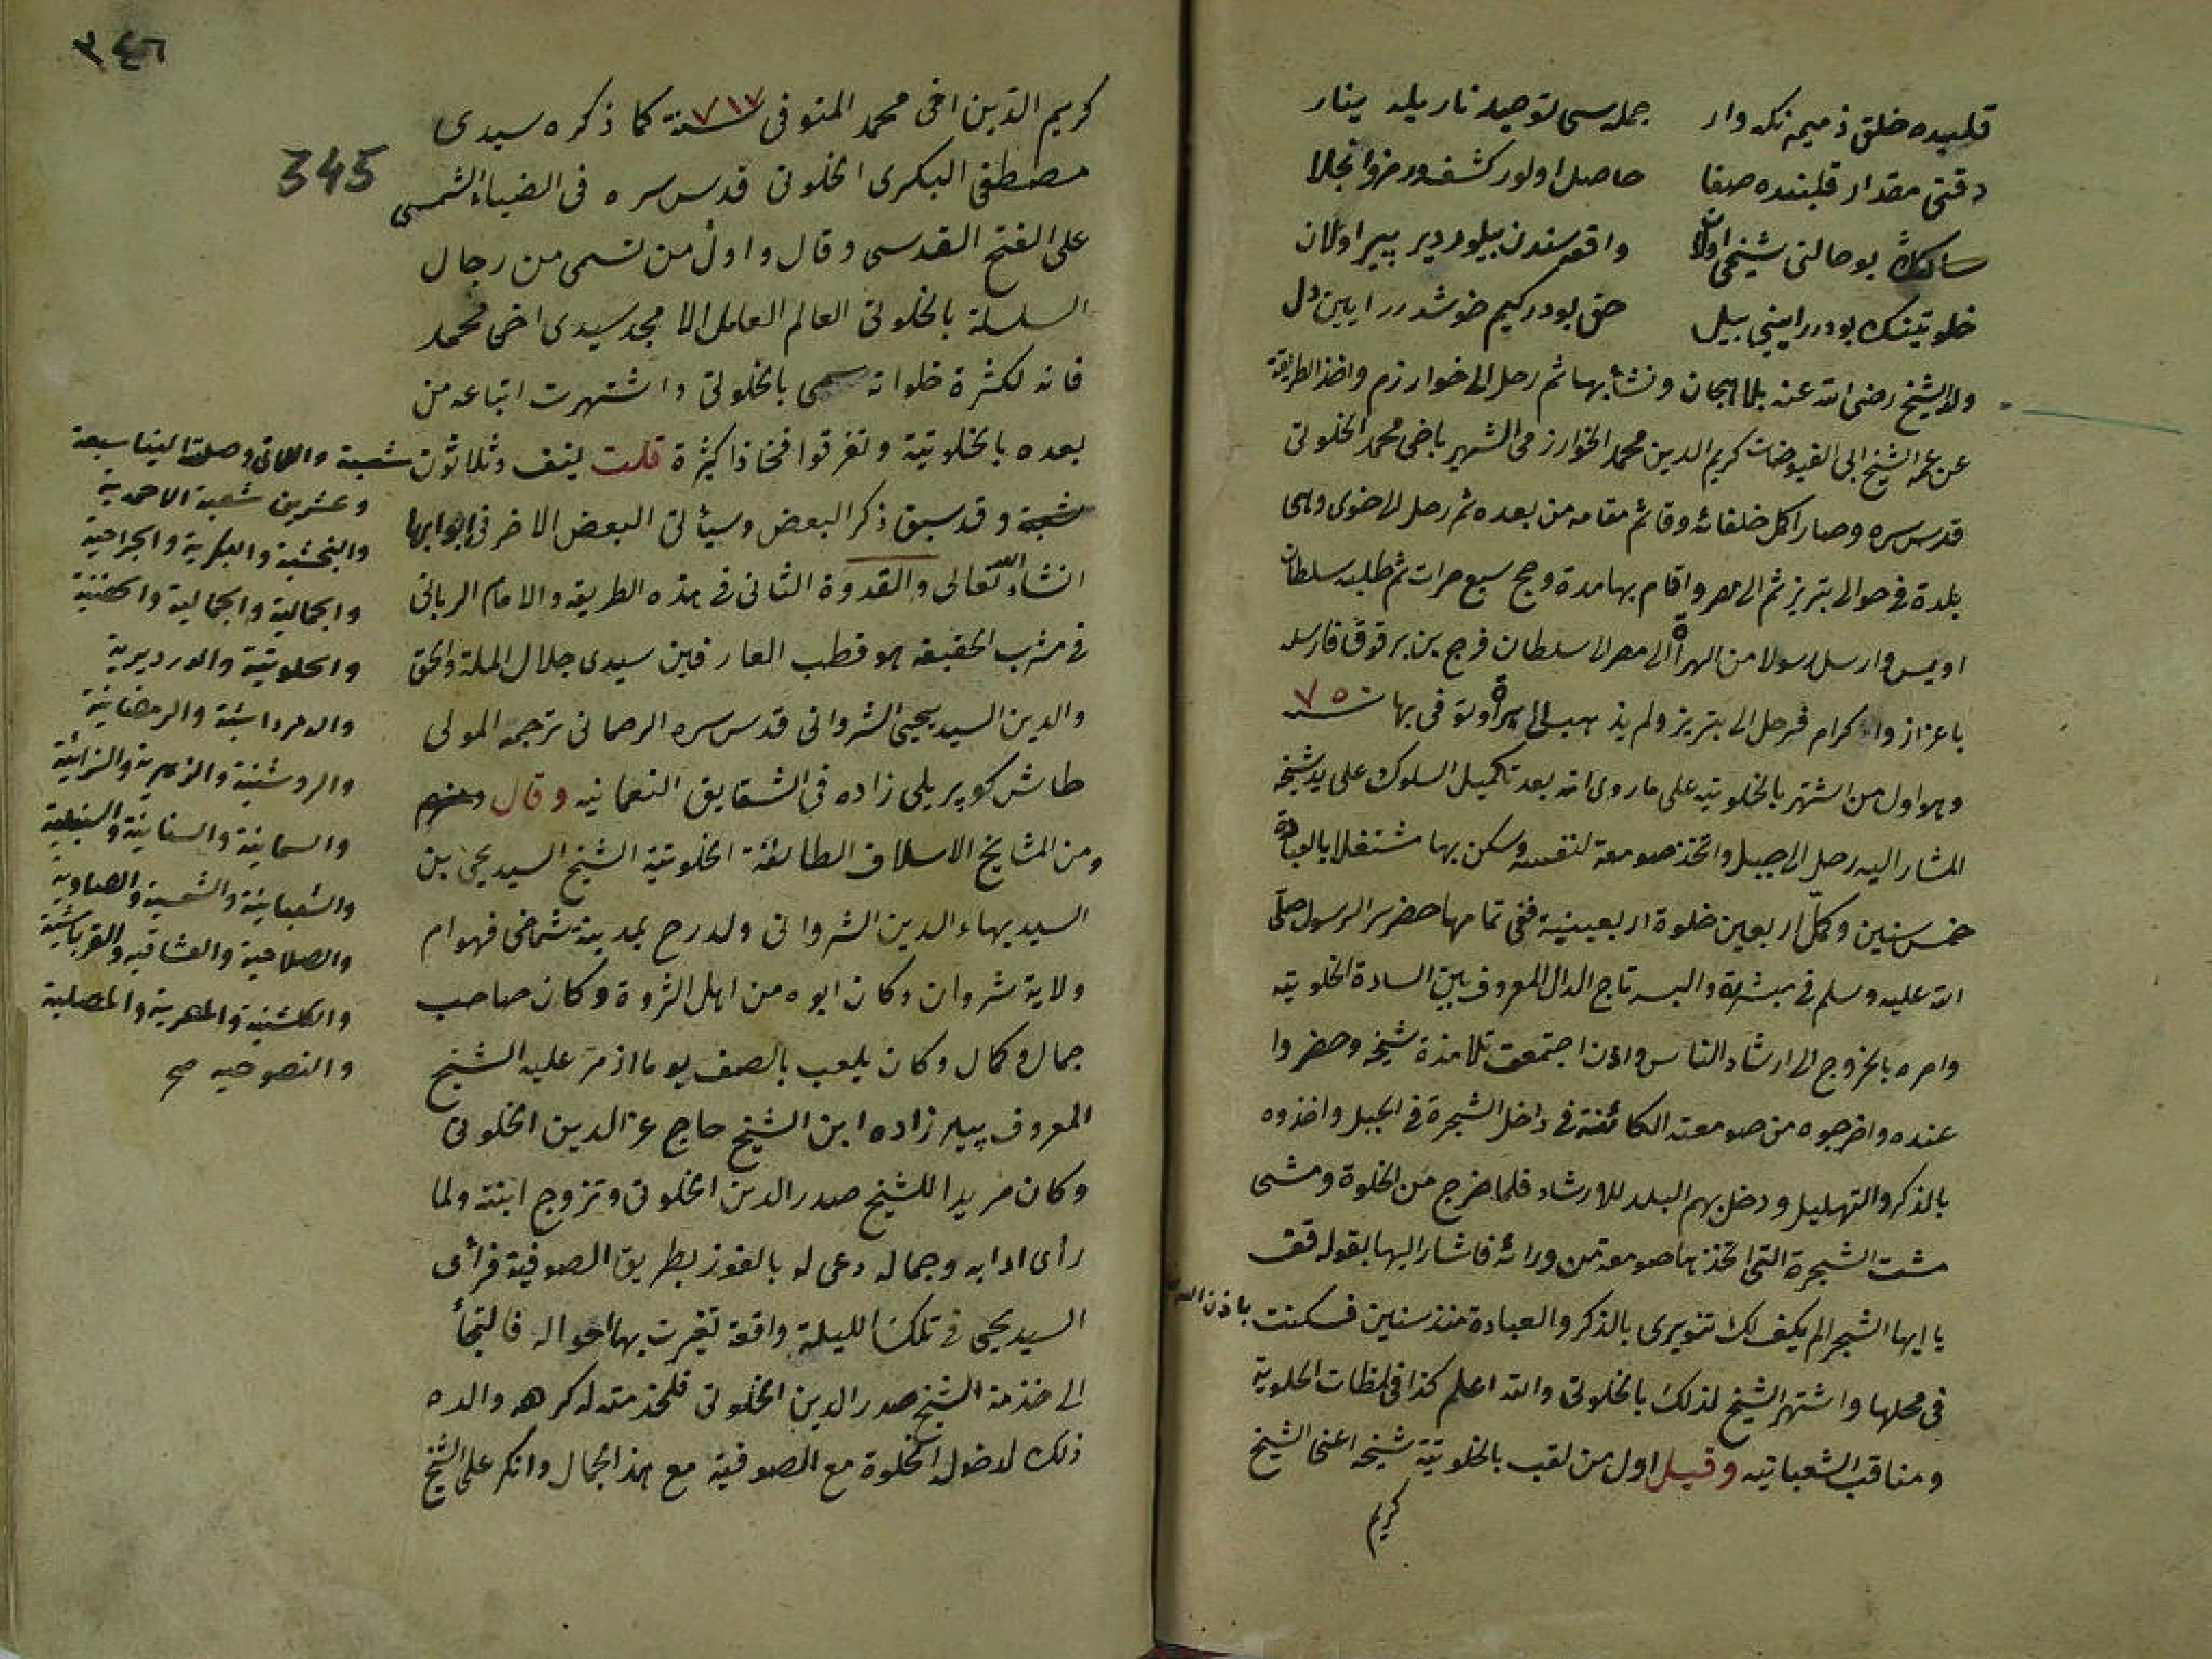 قلبيده خلق ذميمه نكه وار جمله سى توحيد ناريله ينار
دقتى مقدار قلبنده صفا حاصل اولور كشف ورمزوانجلا
سالكك بوحالتى شيخى اولان واقعه سندن بيلوردير پير اولان
خلوتينك بودر رايينى بيل حق بودر كيم خوشدرر ايين دل
ولد الشيخ رضى الله عنه بلاهيجان ونشأ بها ثم رحل الى خوارزم واخذ الطريقة
عن عمه الشيخ ابى الفيوضات كريم الدين محمد الخوارزمى الشهير باخى محمد الخلوتى
قدس سره وصار اكمل خلفائه وقائم مقامه من بعده ثم رحل الى خوى وهى
بلدة فى حوالى تبريز ثم الى مصر واقام بها مدة وحج سبع مرات ثم طلبه سلطان
اويس وارسل رسولا من الهراة الى مصر الى سلطان فرج بن برقوق فارسله
باعزاز واكرام فرحل الى تبريز ولم يذهب الى هراة وتوفى بها سنة ٧٥٠
وهو اول من اشتهر بالخلوتيه على ماروى انه بعد تكميل السلوك على يد شيخه
المشار اليه رحل الى جبل واتخذ صومعة لنفسه وسكن بها مشتغلا بالعبادة
خمس سنين وكمل اربعين خلوة اربعينية ففى تمامها حضر سر الرسول صلى
الله عليه وسلم فى مبشرة والبسه تاج الدال المعروف بين السادة الخلوتيه
وامره بالخروج الى ارشاد الناس واذن اجتمعت تلامذة شيخه وحضروا
عنده واخرجوه من صومعته الكائنة فى داخل الشجرة فى الجبل واخذوه
بالذكر والتهليل ودخل بهم البلد للارشاد فلما خرج من الخلوة ومشى
مشت الشجرة التى اتخذها صومعة من ورائه فاشار اليها بقوله قف
يا ايها الشجر الم يكف لك تنويرى بالذكر والعبادة منذ سنين فسكنت باذن الله
فى محلها واشتهر الشيخ لذلك بالخلوتى والله اعلم كذا فى لمظات الحلوية
ومناقب الشعبانيه وقيل اول من لقب بالخلوتية شيخه اعنى الشيخ
كريم
٣٤٦
345
كريم الدين اخى محمد المتوفى سنة ٧١٧ كما ذكره سيدى
مصطفى البكرى الخلوتى قدس سره فى الضياء الشمسى
على الفتح القدسى وقال واول من تسمى من رجال
السلسلة بالخلوتى العالم العامل الامجد سيدى اخى محمد
فانه لكثرة خلواته سمى بالخلوتى واشتهرت اتباعه من
بعده بالخلوتية وتفرقوا افخاذا كثيرة قلت نيف وثلاثون شعبة والاتى وصلت الينا سبعة
شعبة وقد سبق ذكر البعض وسيأتى البعض الاخر فى ابوابها
انشاء الله تعالى والقدوة الثانى فى هذه الطريقه والامام الربانى
فى مشرب الحقيقه هو قطب العارفين سيدى جلال الملة والحق
والدين السيد يحيى الشروانى قدس سره الرحمانى ترجمه المولى
طاش كوپريلى زاده فى الشقايق النعمانيه وقال ومنهم
ومن المشايخ الاسلاف الطائفة الخلوتية الشيخ السيد يحيى بن
السيد بهاء الدين الشروانى ولد رح بمدينة شماخى فهو ام
ولاية شروان وكان ابوه من اهل الثروة وكان صاحب
جمال وكمال وكان يلعب بالصف يوما اذ مر عليه الشيخ
المعروف پيرزاده ابن الشيخ حاج عز الدين الخلوتى
وكان مريدا للشيخ صدر الدين الخلوتى وتزوج ابنته ولما
رأى ادابه وجماله دعى له بالفوز بطريق الصوفية فرأى
السيد يحيى فى تلك الليلة واقعة تغيرت بها احواله فالتجأ
الى خذمة الشيخ صدر الدين الخلوتى فلخذمته له كره والده
ذلك لدخوله الخلوة مع الصوفية مع هذا الجمال وانكر على الشيخ
وعشرين شعبة الاحمدية
والبخشية والبكرية والجراحية
والجمالية والجمالية والحفنية
والخلوتية والدرديرية
والدمرداشية والرمضانية
والروشنية والزهرية والشرابية
والسمانية والسنانية والسنبلية
والشعبانية والشمسية والصاوية
والصلاحية والعشاقيه والقرباشية
والكلشنية والمصرية والمصلية
والنصوحيه صح